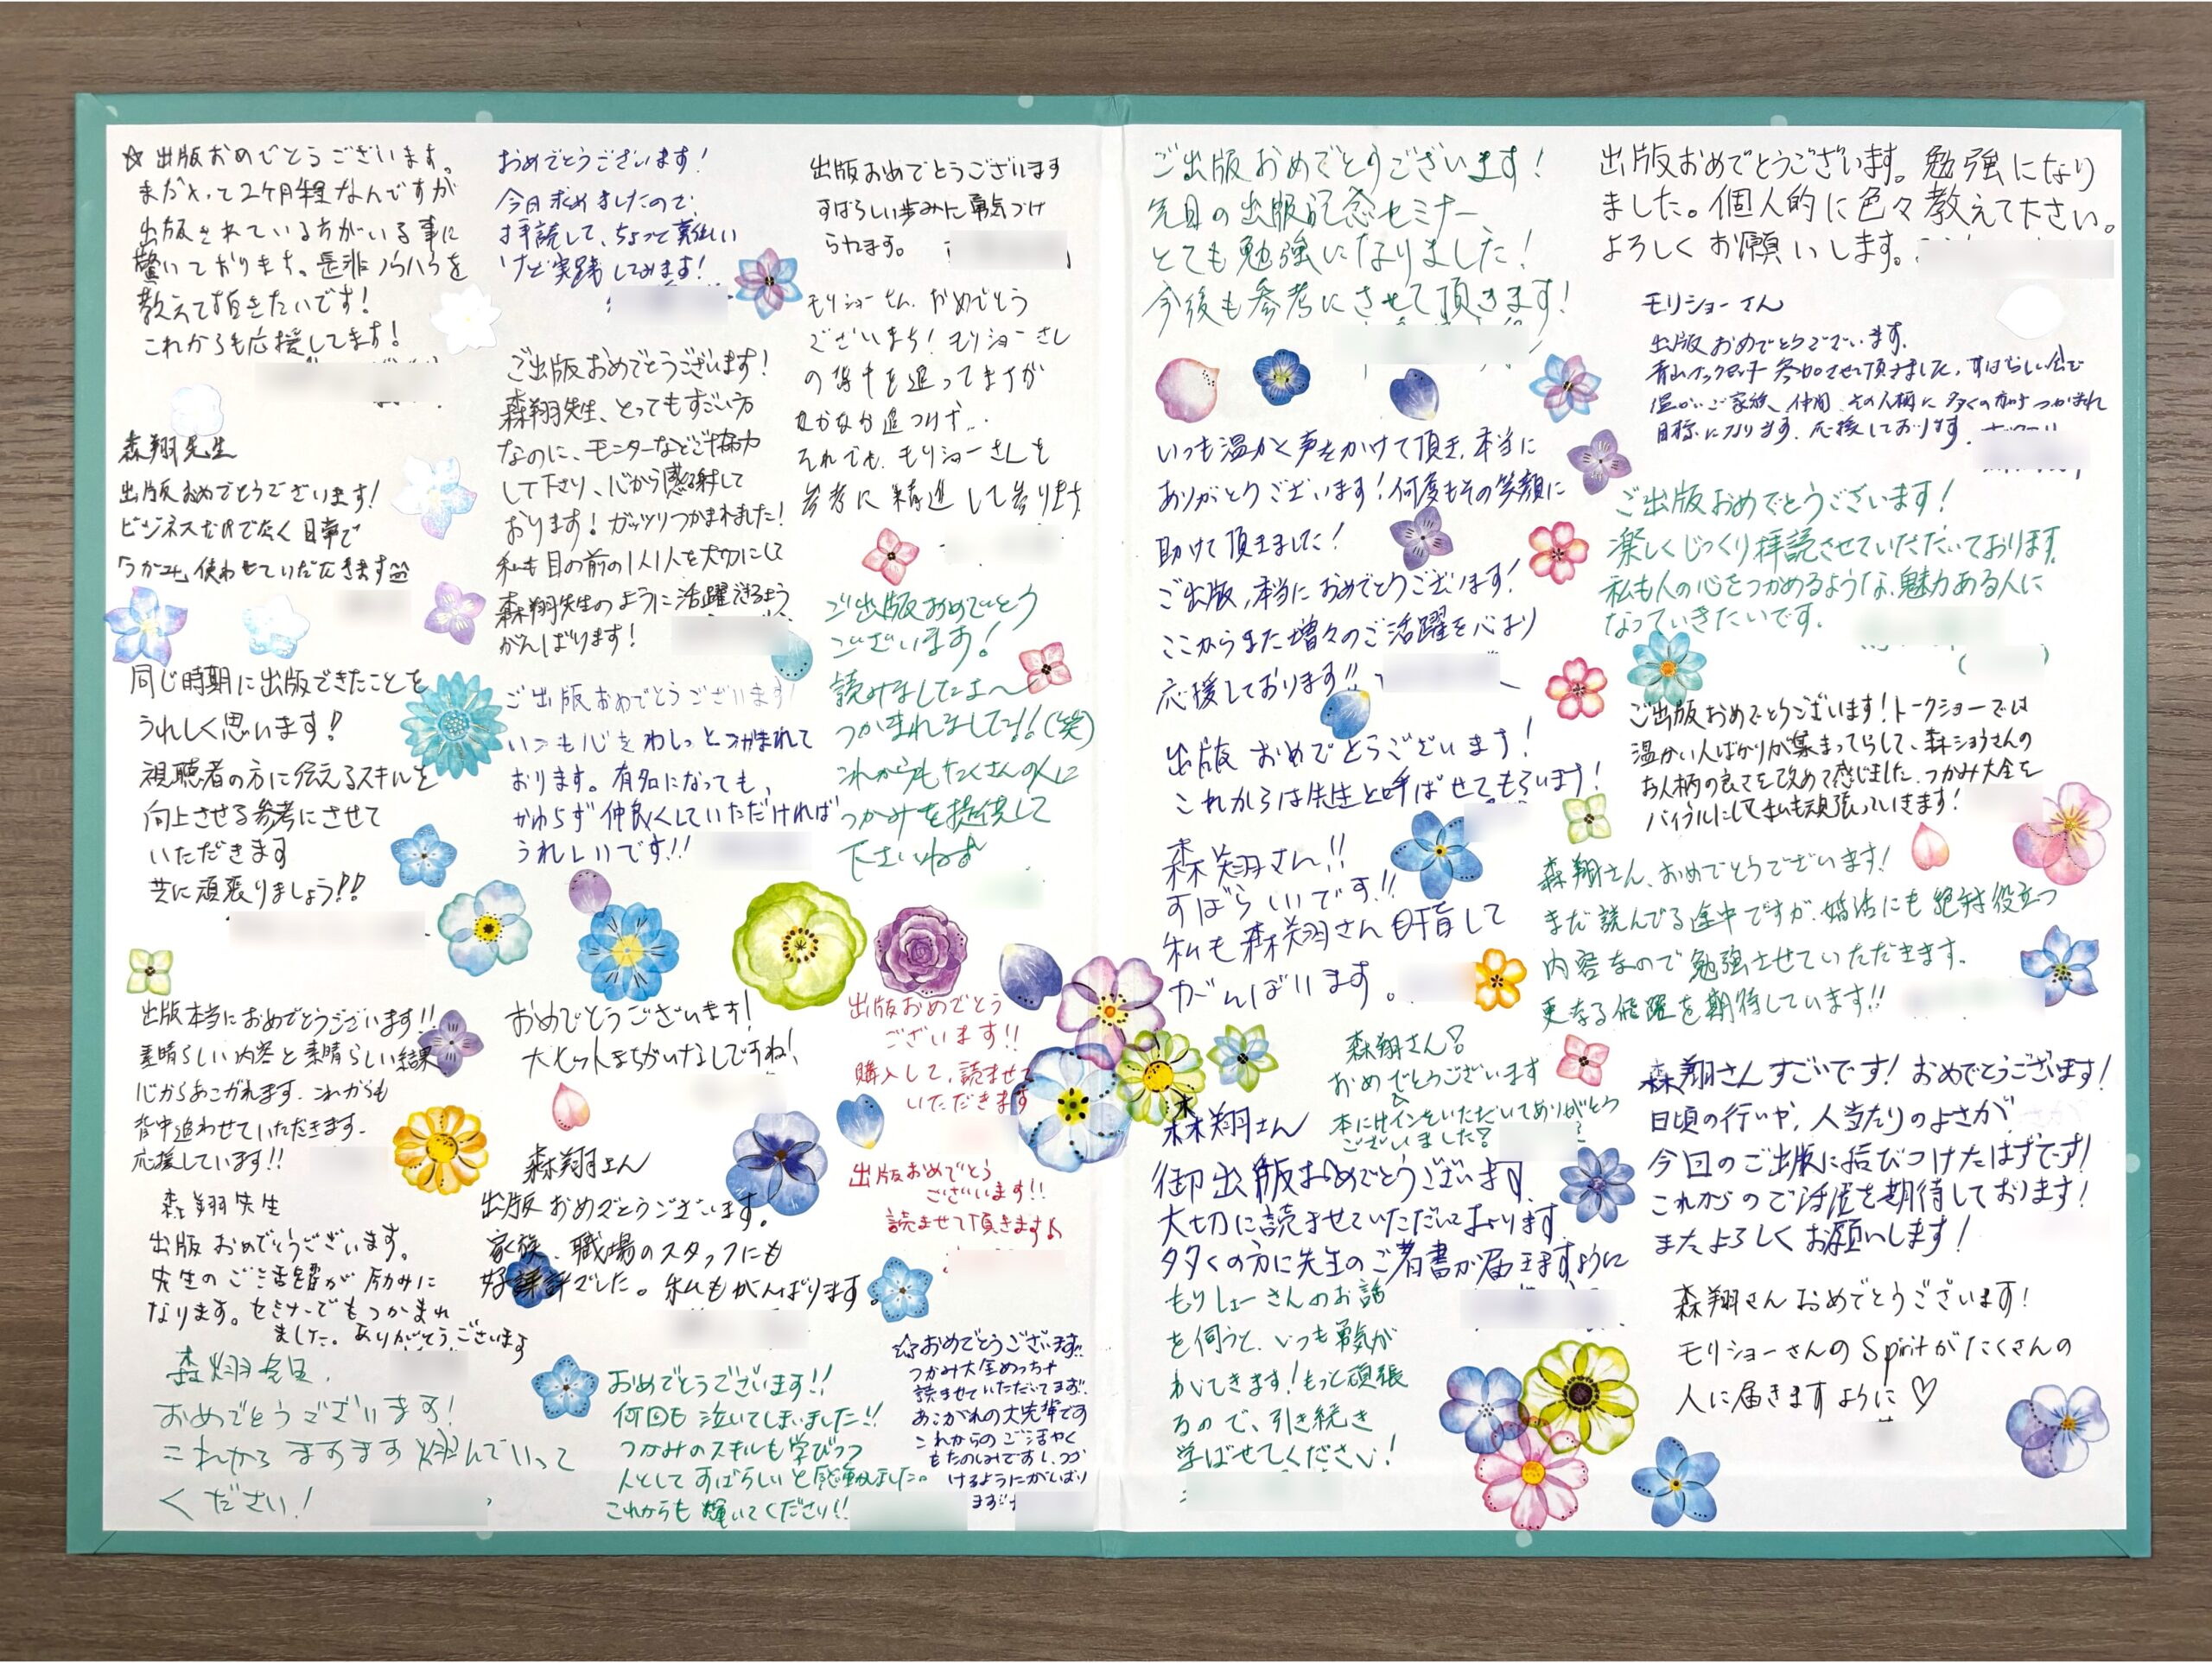 ☆出版おめでとうございます。
まだ入って2ヶ月程なんですが
出版されている方がいる事に
驚いております。是非ノウハウを
教えて頂きたいです!
これからも応援してます!
森翔先生
出版おめでとうございます!
ビジネスだけでなく日常で
「つかみ」使わせていただきます
同じ時期に出版できたことを
うれしく思います!
視聴者の方に伝えるスキルを
向上させる参考にさせて
いただきます
共に頑張りましょう!!
出版本当におめでとうございます!!
素晴らしい内容と素晴らしい結果
心からあこがれます。これからも
背中追わせていただきます。
応援しています!!
森翔先生
出版おめでとうございます。
先生のご活躍が励みに
なります。セミナーでもつかまれ
ました。ありがとうございます
森翔先生
おめでとうございます!
これからますます
ください!
おめでとうございます!
今日求めましたので、
拝読して、ちょっと難しい
けど実践してみます!
ご出版おめでとうございます!
森翔先生、とってもすごい方
なのに、モニターなどご協力
して下さり、心から感謝して
おります!ガッツリつかまれました!
私も目の前の1人1人を大切にして
森翔先生のように活躍できるよう
がんばります!
ご出版おめでとうございます!
いつも心をわしっとつかまれて
おります。有名になっても、
かわらず仲良くしていただければ
うれしいです!!
おめでとうございます!
大ヒットまちがいなしですね!
森翔さん
出版おめでとうございます。
家族、職場のスタッフにも
好評でした。私もがんばります。
おめでとうございます!!
何回も泣いてしまいました!!
つかみのスキルも学びつつ
人としてすばらしいと感動しました。
これからも輝いてください!!
出版おめでとうございます
すばらしい歩みに勇気づけ
られます。
モリショーさん、おめでとう
ございます!モリショーさん
の背中を追ってますが
なかなか追つけず...
それでも、モリショーさんを
参考に精進して参ります
ご出版おめでとう
ございます!
読みましたよ〜
つかまれました!!(笑)
これからもたくさんの人に
つかみを提供して
下さいね
出版おめでとう
ございます!!
購入して、読ませて
いただきます
出版おめでとう
ございます!!
読ませて頂きます♪
☆おめでとうございます!!
つかみ大全めっちゃ
読ませていただいてます!
あこがれの大先輩です
これからのご活やく
もたのしみですし、つづ
けるようにがんばり
ます!!
ご出版おめでとうございます!
先日の出版記念セミナー
とても勉強になりました!
今後も参考にさせて頂きます!
いつも温かく声をかけて頂き、本当に
ありがとうございます!何度もその笑顔に
助けて頂きました!
ご出版、本当におめでとうございます!
ここからまた増々のご活躍を心より
応援しております!!
出版おめでとうございます!
これからは先生と呼ばせてもらいます!
森翔さん!!
すばらしいです!!
私も森翔さん目指して
がんばります。
森翔さん!
おめでとうございます
本にサインをいただいてありがとう
ございました!
森翔さん
御出版おめでとうございます。
大切に読ませていただいております。
多くの方に先生のご著書が届きますように
もりしょーさんのお話
を伺うと、いつも勇気が
わいてきます!もっと頑張
るので、引き続き
学ばせてください!
出版おめでとうございます。勉強になり
ました。個人的に色々教えて下さい。
よろしくお願いします。
モリショーさん
出版おめでとうございます。
青山ブックセンター参加させて頂きました。すばらしい会で
温かいご家族、仲間、その人柄に多くの方がつかまれ
目標になります。応援しております。
ご出版おめでとうございます!
楽しくじっくり拝読させていただいております。
私も人の心をつかめるような、魅力ある人に
なっていきたいです。
ご出版おめでとうございます!トークショーでは
温かい人ばかりが集まってらして、森ショウさんの
お人柄の良さを改めて感じました。つかみ大全を
バイブルにして私も頑張っていきます!
森翔さん、おめでとうございます!
まだ読んでる途中ですが、婚活にも絶対役立つ
内容なので勉強させていただきます。
更なる飛躍を期待しています!!
森翔さんすごいです!おめでとうございます!
日頃の行いや、人当たりのよさが、
今回のご出版に結びつけたはずです!
これからのご活躍を期待しております!
またよろしくお願いします!
森翔さんおめでとうございます!
モリショーさんのSpiritがたくさんの
人に届きますように♡